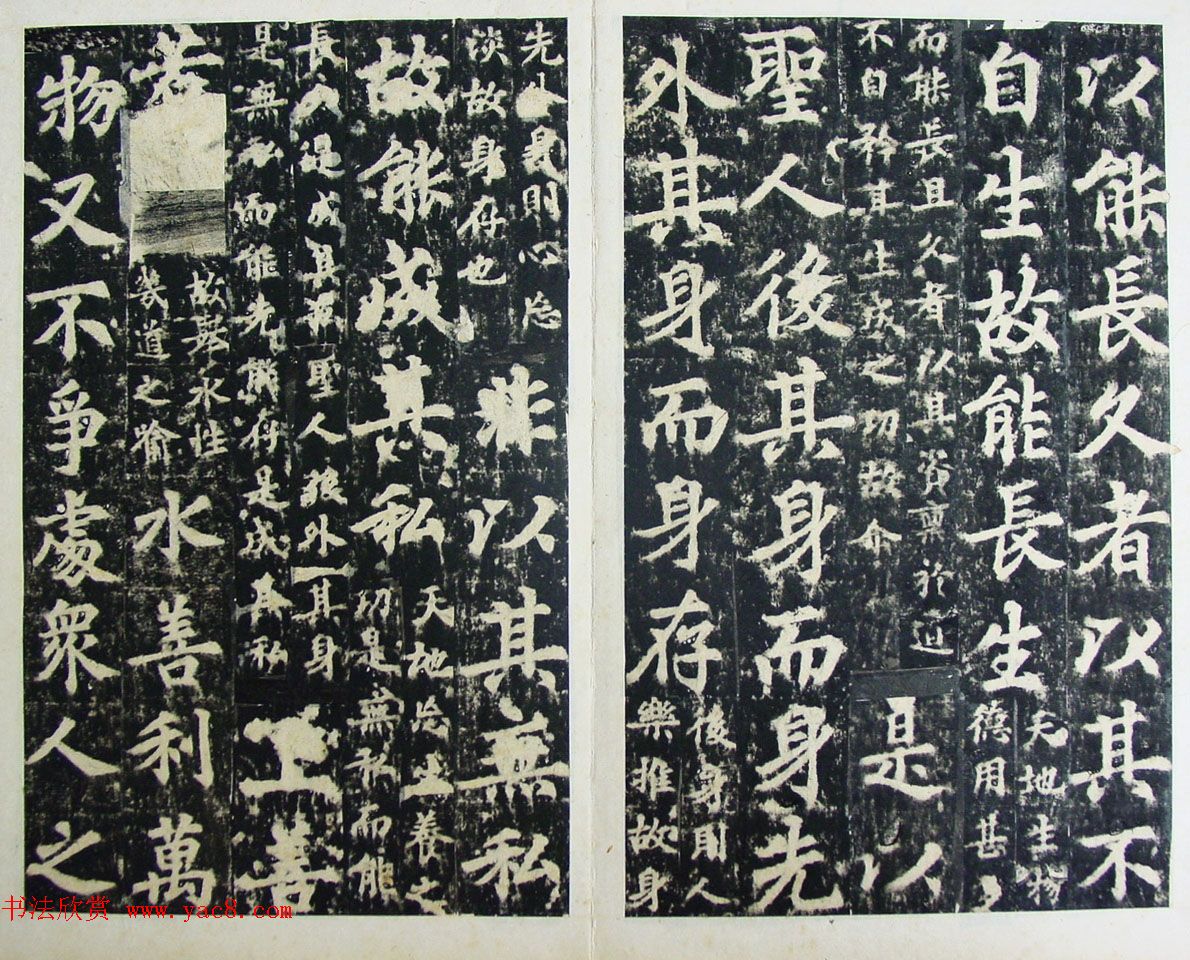 以能長久者以其不
自生故能長生
天地生物
德用甚多
而能長且久者以其資稟於道
不自矜其生成之功故尒
是以
聖人後其身而身先
外其身而身存
後身則人
樂推故身
先外身則心忘
淡故身存也
非以其無私
故能成其私
天地忘生養之
功是無私而能
長久是成其私聖人後外其身
是無私而能先能存是成其私
上善
若
故舉水性
幾道之喻
水善利萬
物又不爭處衆人之
书法欣赏 www.yac8.com